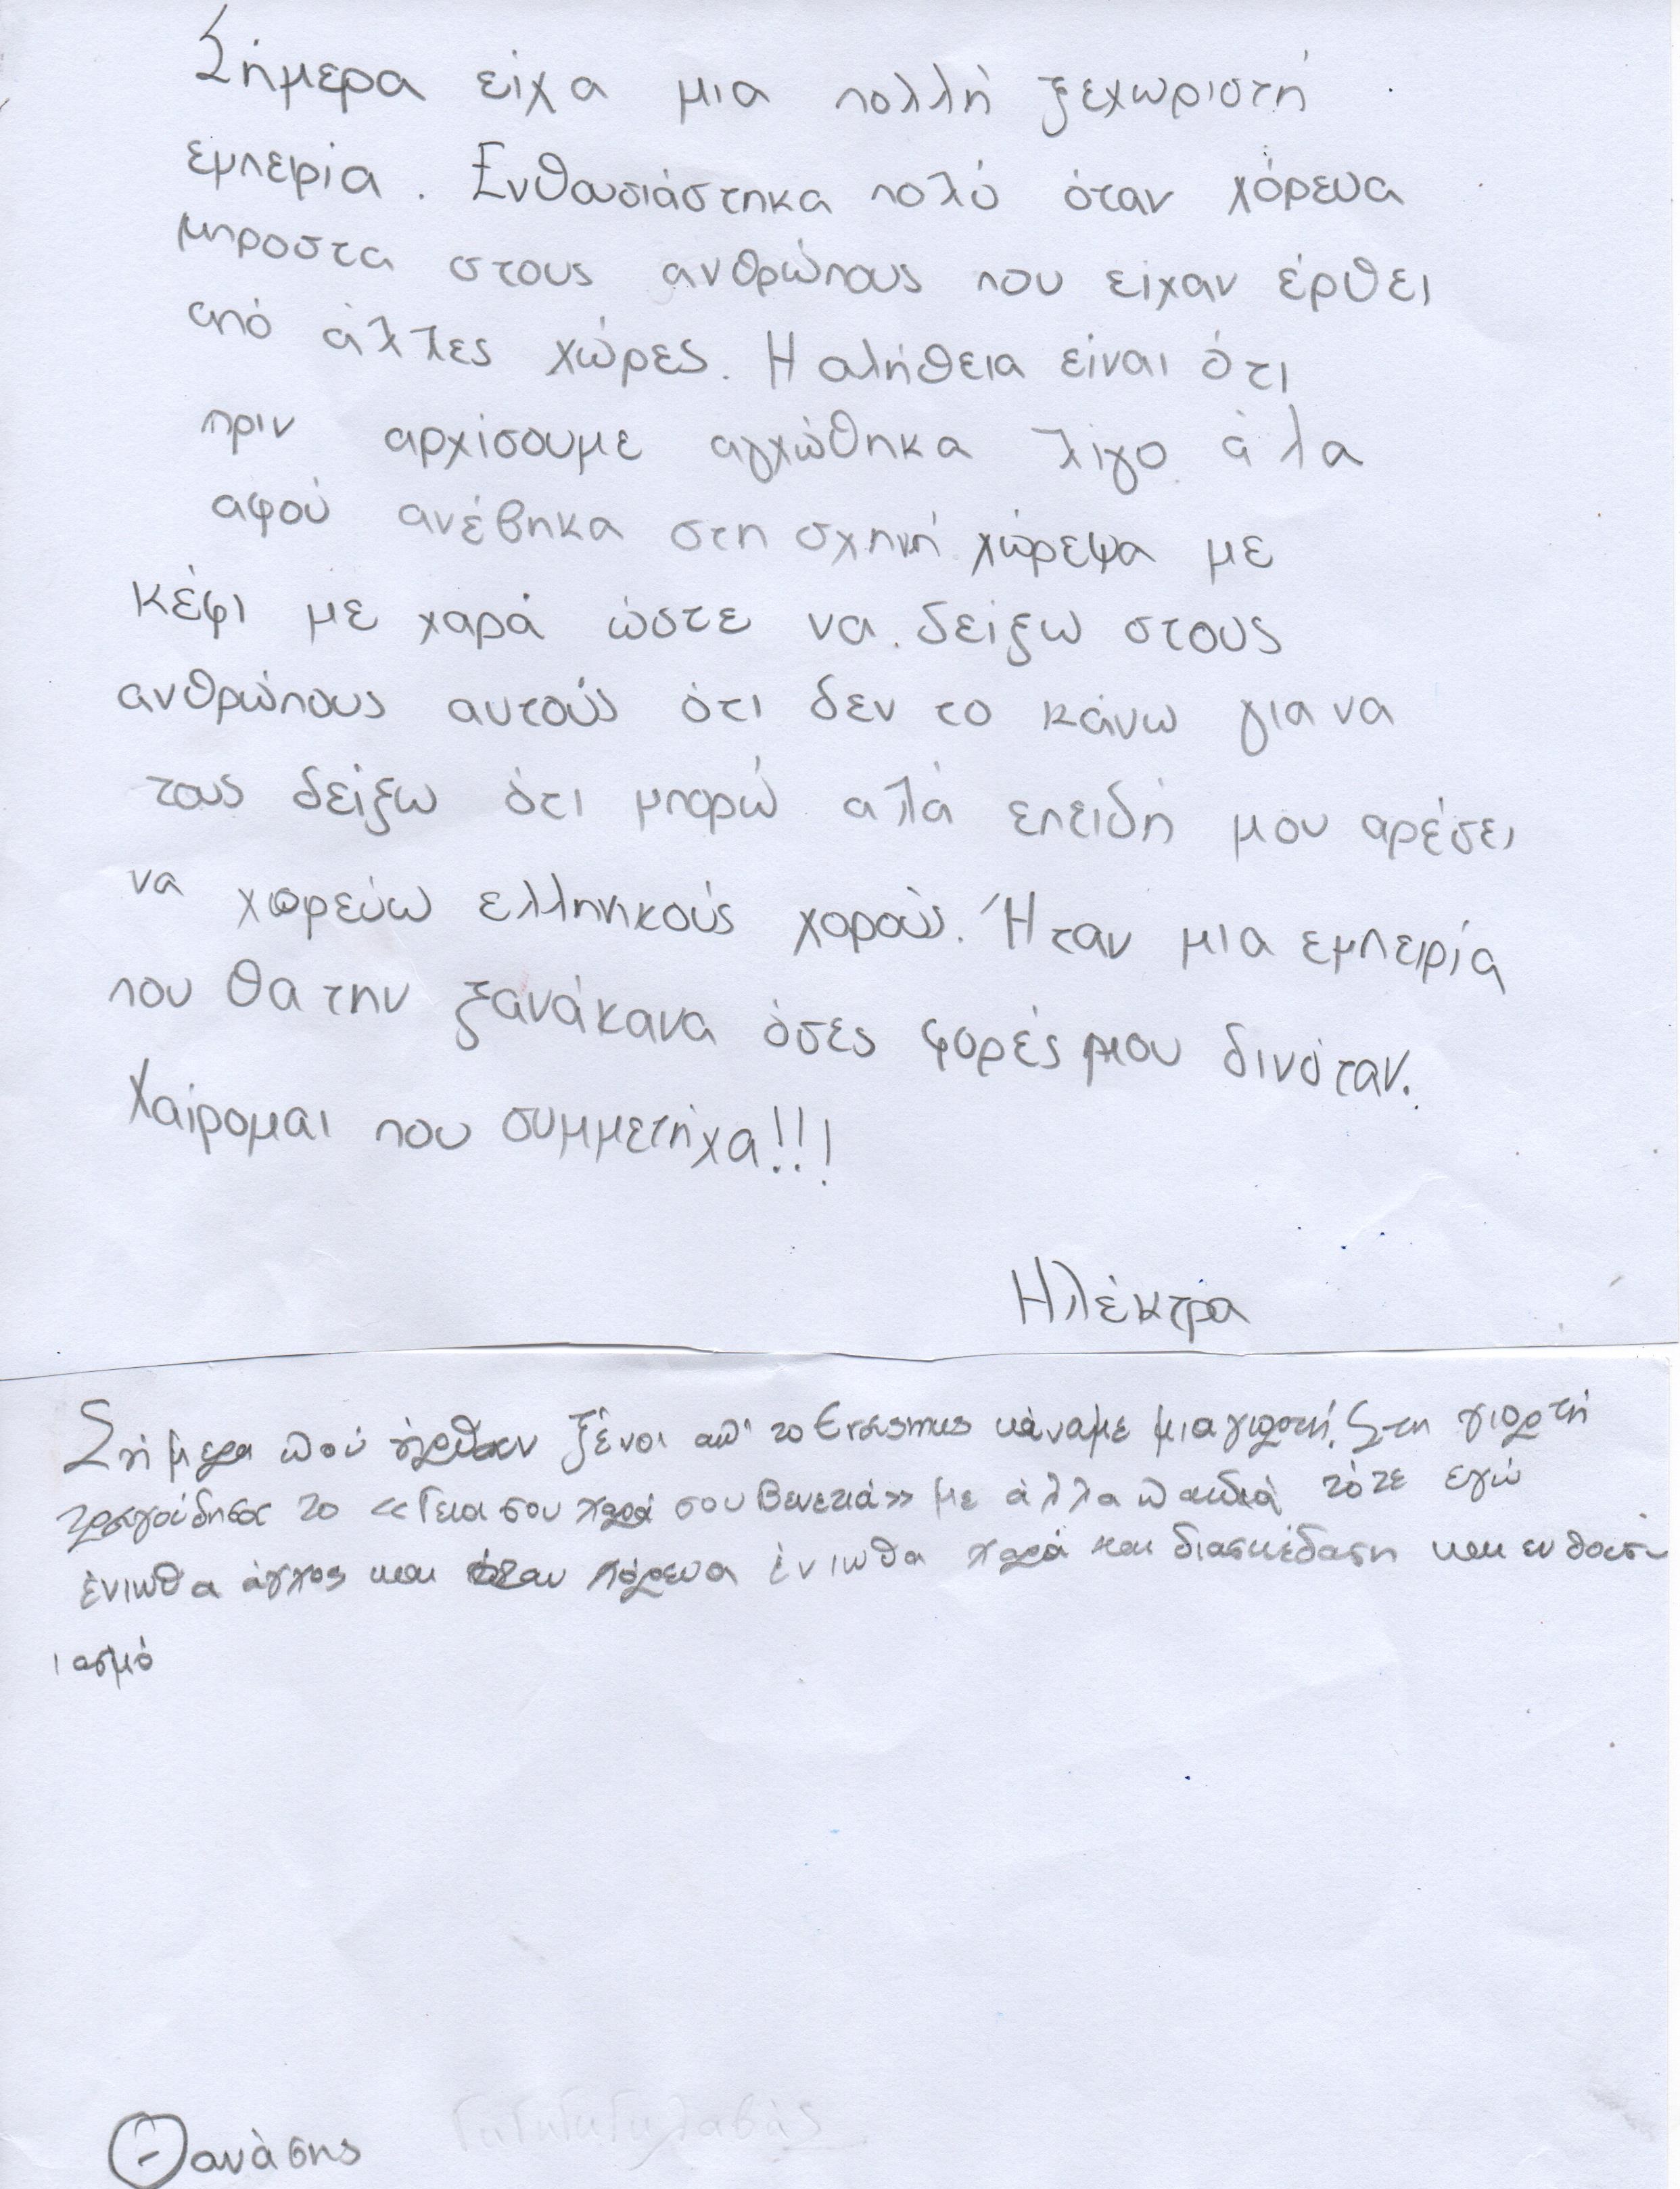 Σήμερα είχα μια πολλή ξεχωριστή
εμπειρία. Ενθουσιάστηκα πολύ όταν χόρευα
μπροστα στους ανθρώπους που είχαν έρθει
από άλλες χώρες. Η αλήθεια είναι ότι
πριν αρχίσουμε αγχώθηκα λίγο άλα
αφού ανέβηκα στη σχηνή χώρεψα με
κέφι με χαρά ώστε να δείξω στους
ανθρώπους αυτούς ότι δεν το κάνω για να
τους δείξω ότι μπορώ αλά επειδή μου αρέσει
να χορεύω ελληνικούς χορούς. Ήταν μια εμπειρία
που θα την ξανάκανα όσες φορές μου δινόταν.
Χαίρομαι που συμμετήχα!!!
Ηλέκτρα
Σήμερα πού ήρθαν ξένοι απ' το Erasmus κάναμε μια γιορτή. Στη γιορτή
τραγούδησα το «Γεια σου χαρά σου Βενετιά» με άλλα παιδιά τότε εγώ
ένιωθα άγχος και όταν χόρευα ένιωθα χαρά και διασκέδαση και ενθουσι-
ιασμό
Θανάσης